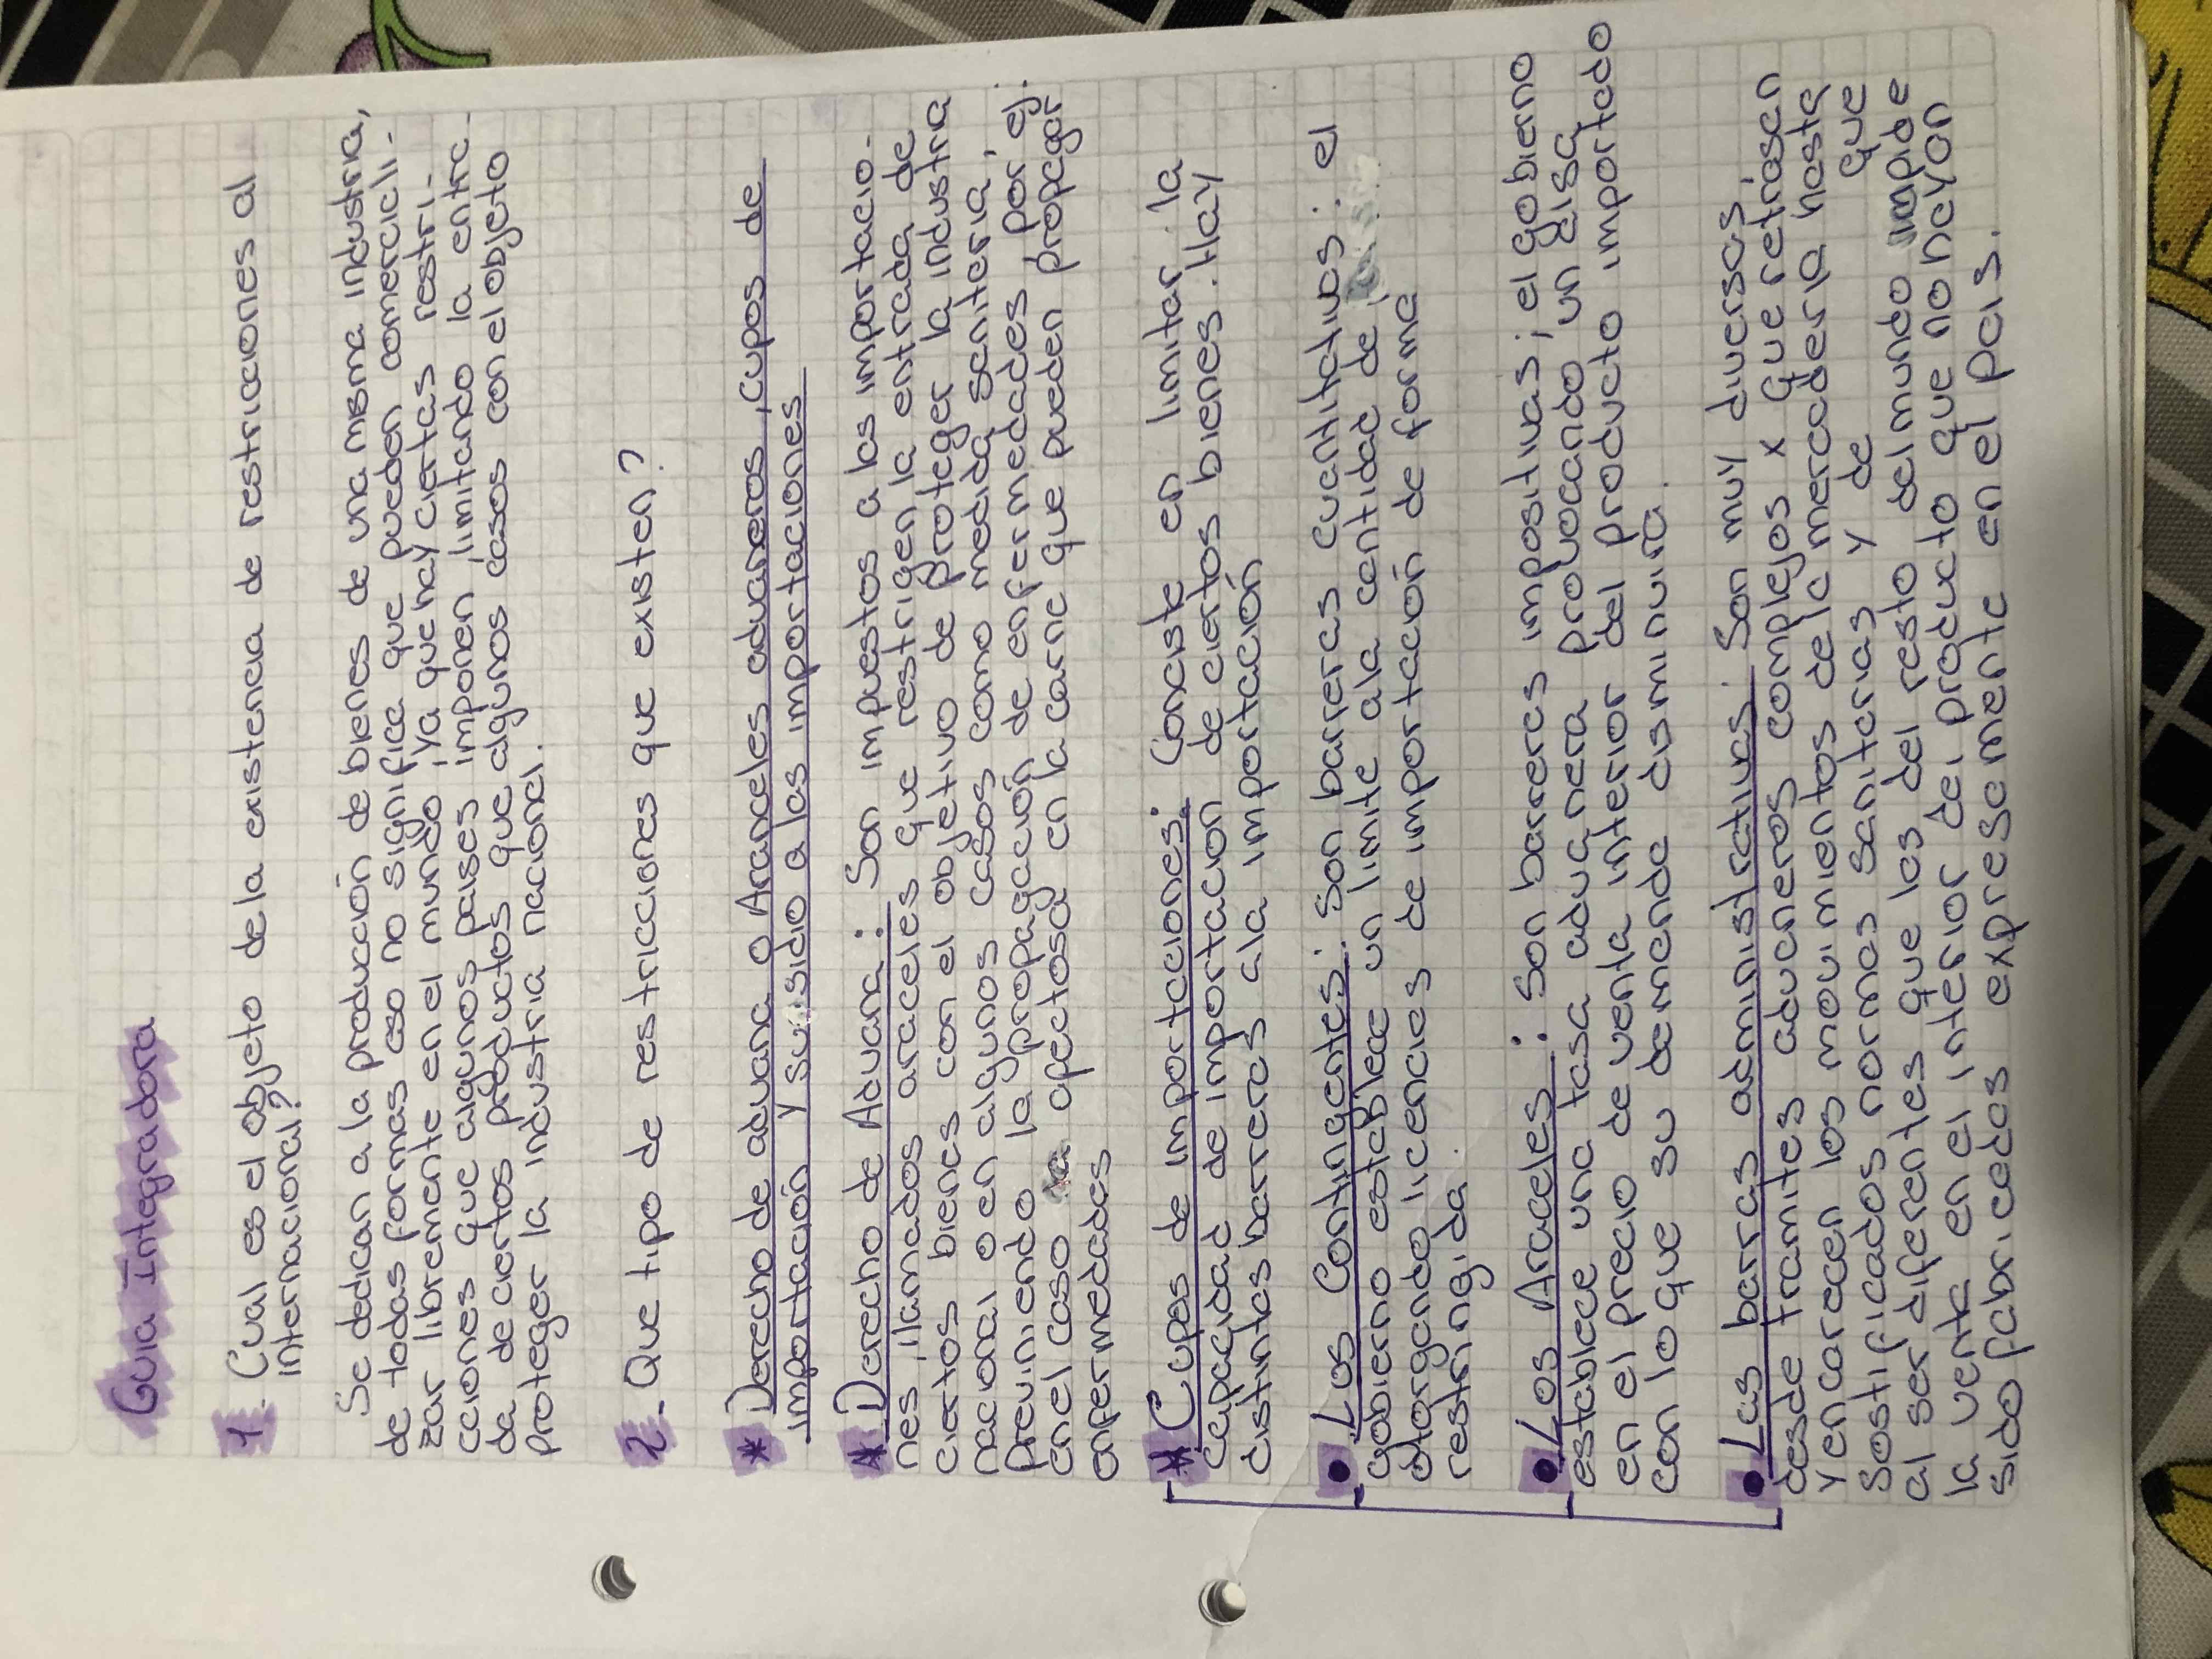 Guia Integradora
1. Cual es el objeto dela existencia de restricciones al
internacional?
Se dedican a la producción de bienes de una misma industria,
de todas formas eso no significa que pueden comerciali-
zar libremente en el mundo, ya que hay ciertas restri-
cciones que algunos paises imponen, limitando la entra-
da de ciertos productos que algunos casos con el objeto
proteger la industria nacional.
2. Que tipo de restricciones que existen?
* Derecho de aduana o Aranceles aduaneros, cupos de
importación y susidio a las importaciones
* Derecho de Aduana: Son impuestos a las importacio-
nes, llamados araceles que restrigen la entrada de
ciertos bienes con el objetivo de proteger la industria
nacional o en algunos casos como medida sanitaria,
previniendo la propagacción de enfermedades por ej.
en el caso afectosa en la carne que pueden propagar
enfermedades
* Cupos de importaciones: Conciste en limitar la
capacidad de importación de ciertos bienes. Hay
distintas barreras ala importación
• Los Contingentes: Son barreras cuantitativas: el
gobierno establece un limite ala cantidad de
otorgando licencias de importación de forma
restringida.
• Los Araceles: Son barreras impositivas; el gobierno
establece una tasa aduanera provocando un alsa
en el precio de venta interior del producto importado
con lo que su demanda disminuira.
• Las barras administrativas: Son muy diversas;
desde tramites aduaneros complejos x que retrasen
y encarecen los movimientos de la mercaderia hasta
sostificados normas sanitarias y de que
al ser diferentes que las del resto del mundo impide
la venta en el interior del producto que no hayan
sido fabricados expresamente en el pais.